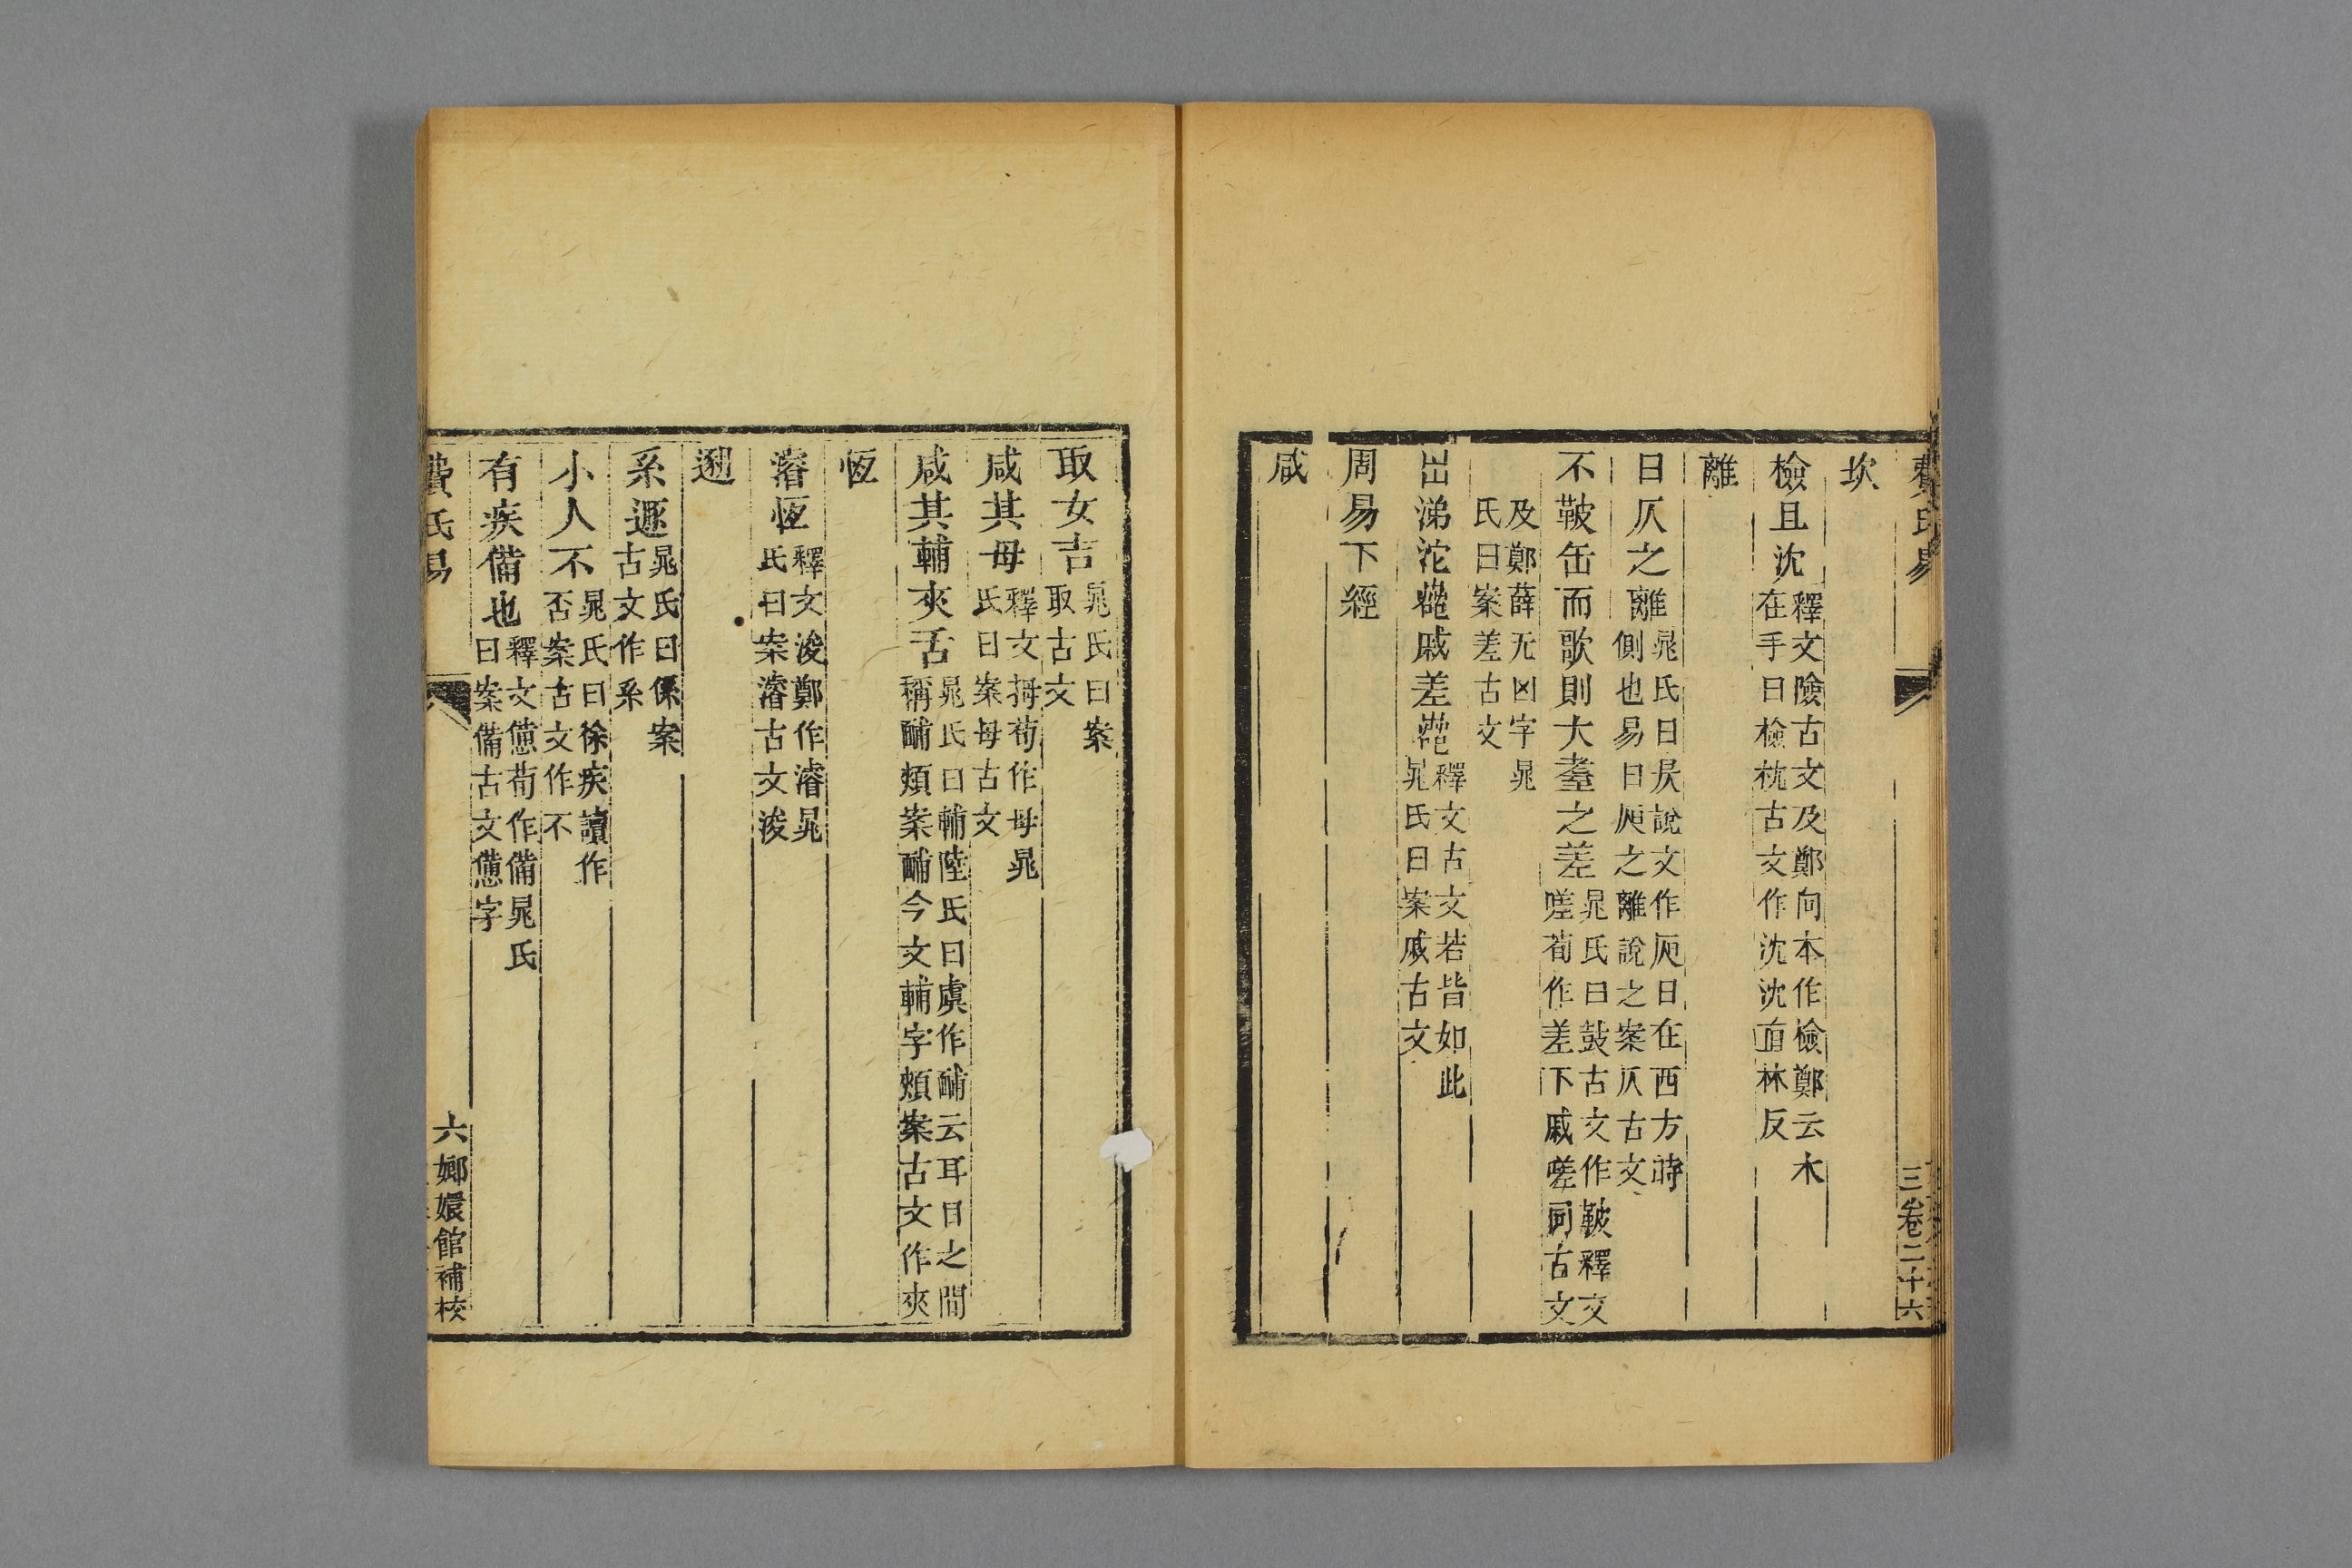 費氏易
三卷二十六
坎
檢且沈釋文險古文及鄭向本作檢鄭云木
在手曰檢枕古文作沈沈直林反
離
日仄之離晁氏曰昃說文作㫃日在西方時
側也易曰之離說之案仄古文
不鞁缶而歌則大耋之差晁氏曰鼓古文作鞁釋文
嗟荀作差下戚嗟同古文
及鄭薛无凶字晁
氏曰案差古文
出涕沱戚差釋文古文若皆如此
晁氏曰案戚古文
周易下經
咸
取女吉晁氏曰案
取古文
咸其母釋文拇荀作母晁
氏曰案母古文
咸其輔夾舌晁氏曰輔陸氏曰虞作䩉云耳目之間
稱䩉頰案䩉今文輔字頰案古文作夾
恆
濬恆釋文浚鄭作濬晁
氏曰案濬古文浚
遯
系遯晁氏曰係案
古文作系
小人不晁氏曰徐疾讀作
否案古文作不
有疾備也釋文憊荀作備晁氏
曰案備古文憊字
費氏易
六嫏嬛館補校